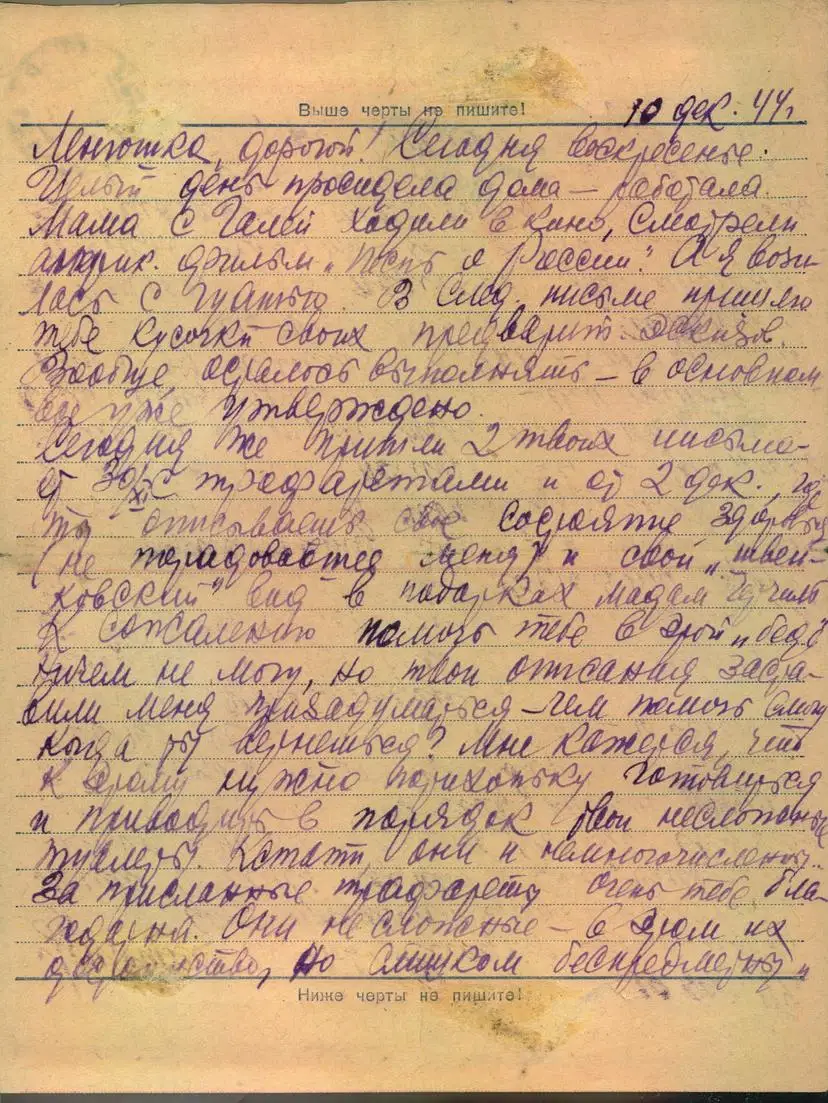 Выше черты не пишите!
10 дек. 44 г
Ленюшка, дорогой! Сегодня воскресенье.
Целый день просидела дома – работала
Мама с Галей ходили в кино, смотрели
америк. фильм „Песнь о России". А я вози-
лась с гуашью. В след. письме пришлю
тебе кусочки своих предварит. эскизов.
Вообще, осталось выполнять – в основном
все уже утверждено.
Сегодня же пришли 2 твоих письма –
от 30/XI с трафаретами и от 2 дек., где
ты описываешь свое состояние здоровья
(не порадовавшее меня) и свой „швей-
ковский" вид в подарках мадам
К сожалению помочь тебе в этой „беде"
ничем не могу, но твои описания заста-
вили меня призадуматься – чем помочь смогу
когда ты вернешься? Мне кажется, что
к этому нужно потихоньку готовиться
и приводить в порядок твои несложные
туалеты. Кстати, они и немногочисленны..
За присланные трафареты очень тебе бла-
годарна. Они несложные – в этом их
достоинство, но слишком беспредметны и
Ниже черты не пишите!